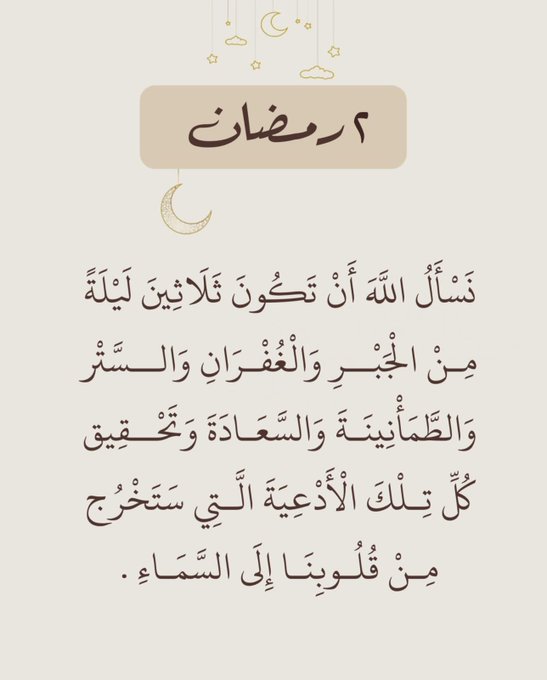 ٢ رمضان
نَسْأَلُ اللَّهَ أَنْ تَكُونَ ثَلَاثِينَ لَيْلَةً
مِـنْ الْجَبْـــرِ وَالْغُفْـرَانِ وَالــــسَّتْر
وَالطَّمَأْنِينَــةَ وَالسَّعَــادَةَ وَتَحْـــقِيق
كُلِّ تِــلْكَ الْأَدْعِيَةَ الَّــتِي سَتَخْرُج
مِــنْ قُلُــوبِنَــا إِلَى السَّمَــاءِ .